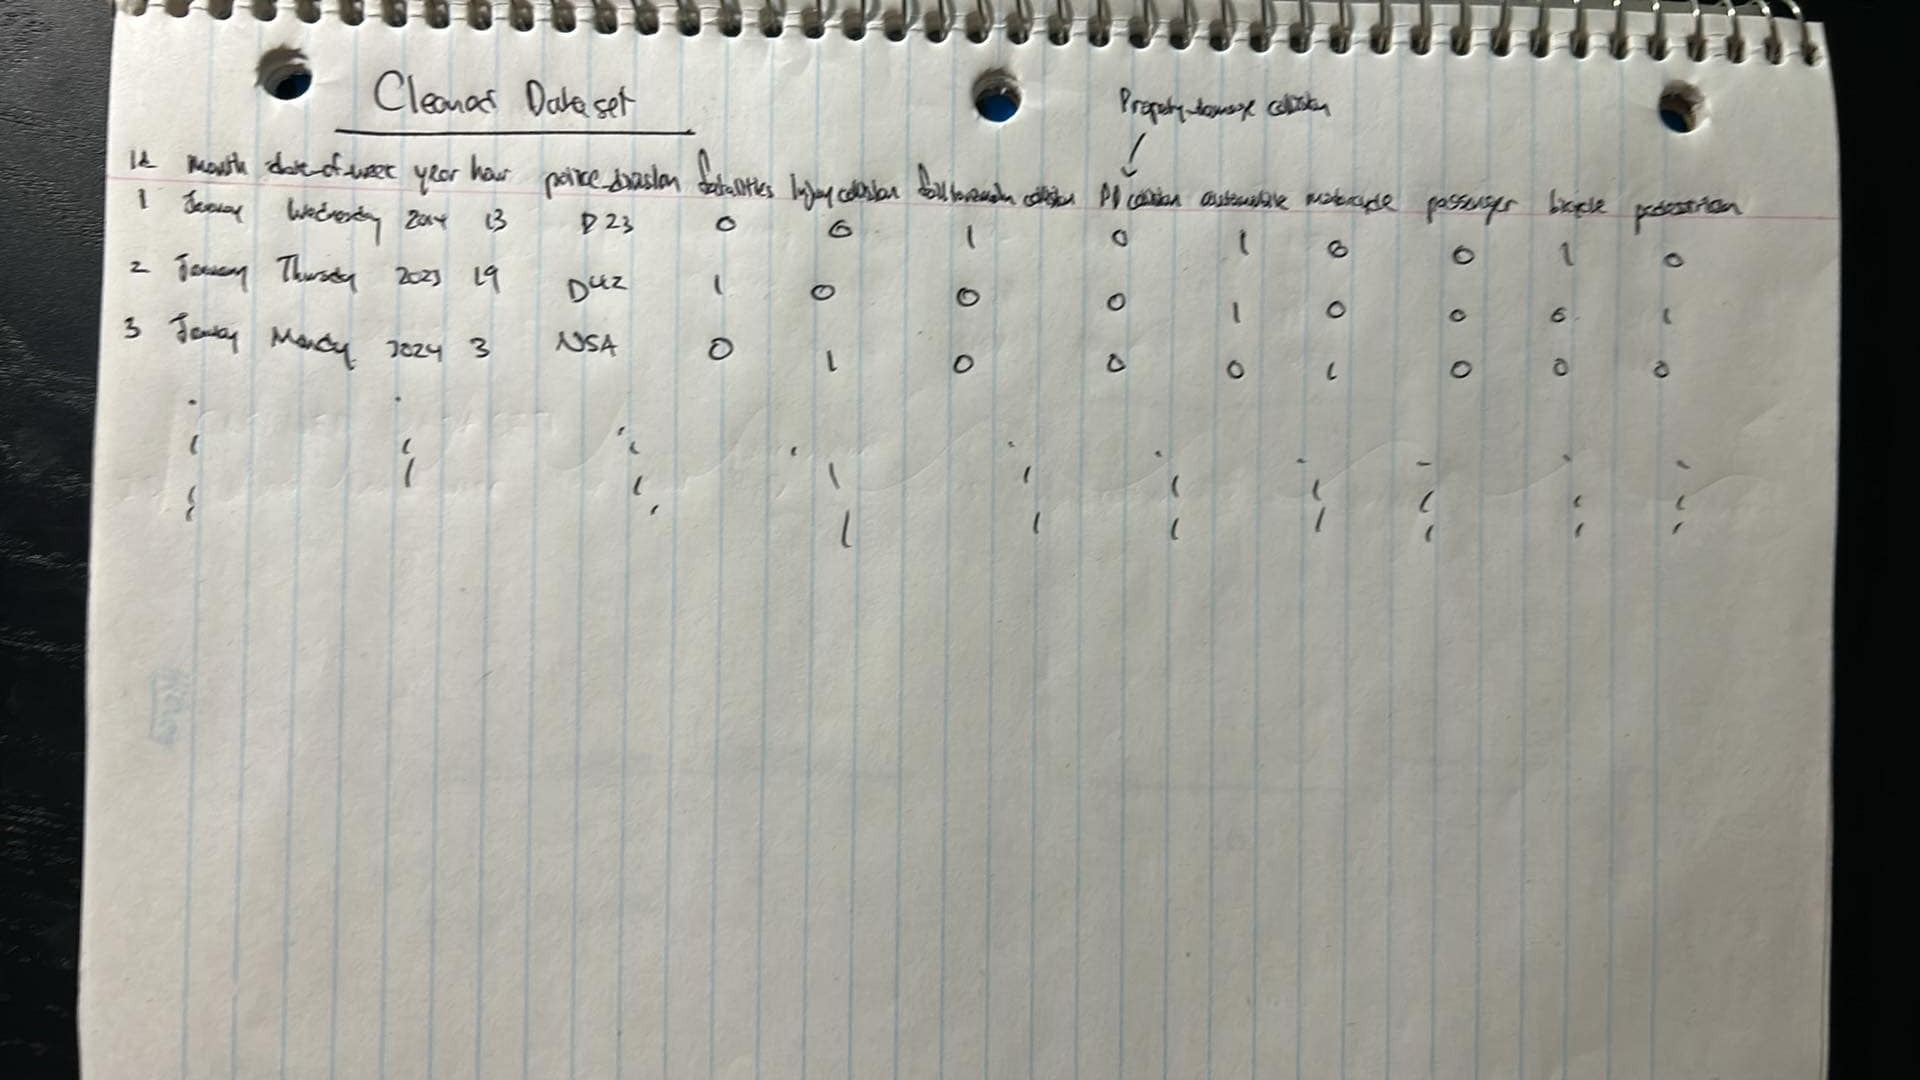 Cleaned Dataset
Property-damage collision
id month date-of-week year hour police-division fatalities Injury collision fail to remain collision PD collision automobile motorcycle passenger bicycle pedestrian
1 January Wednesday 2014 13 D23 0 0 1 0 1 0 0 1 0
2 January Thursday 2023 19 D42 1 0 0 0 1 0 0 0 1
3 January Monday 2024 3 NSA 0 1 0 0 0 1 0 0 0